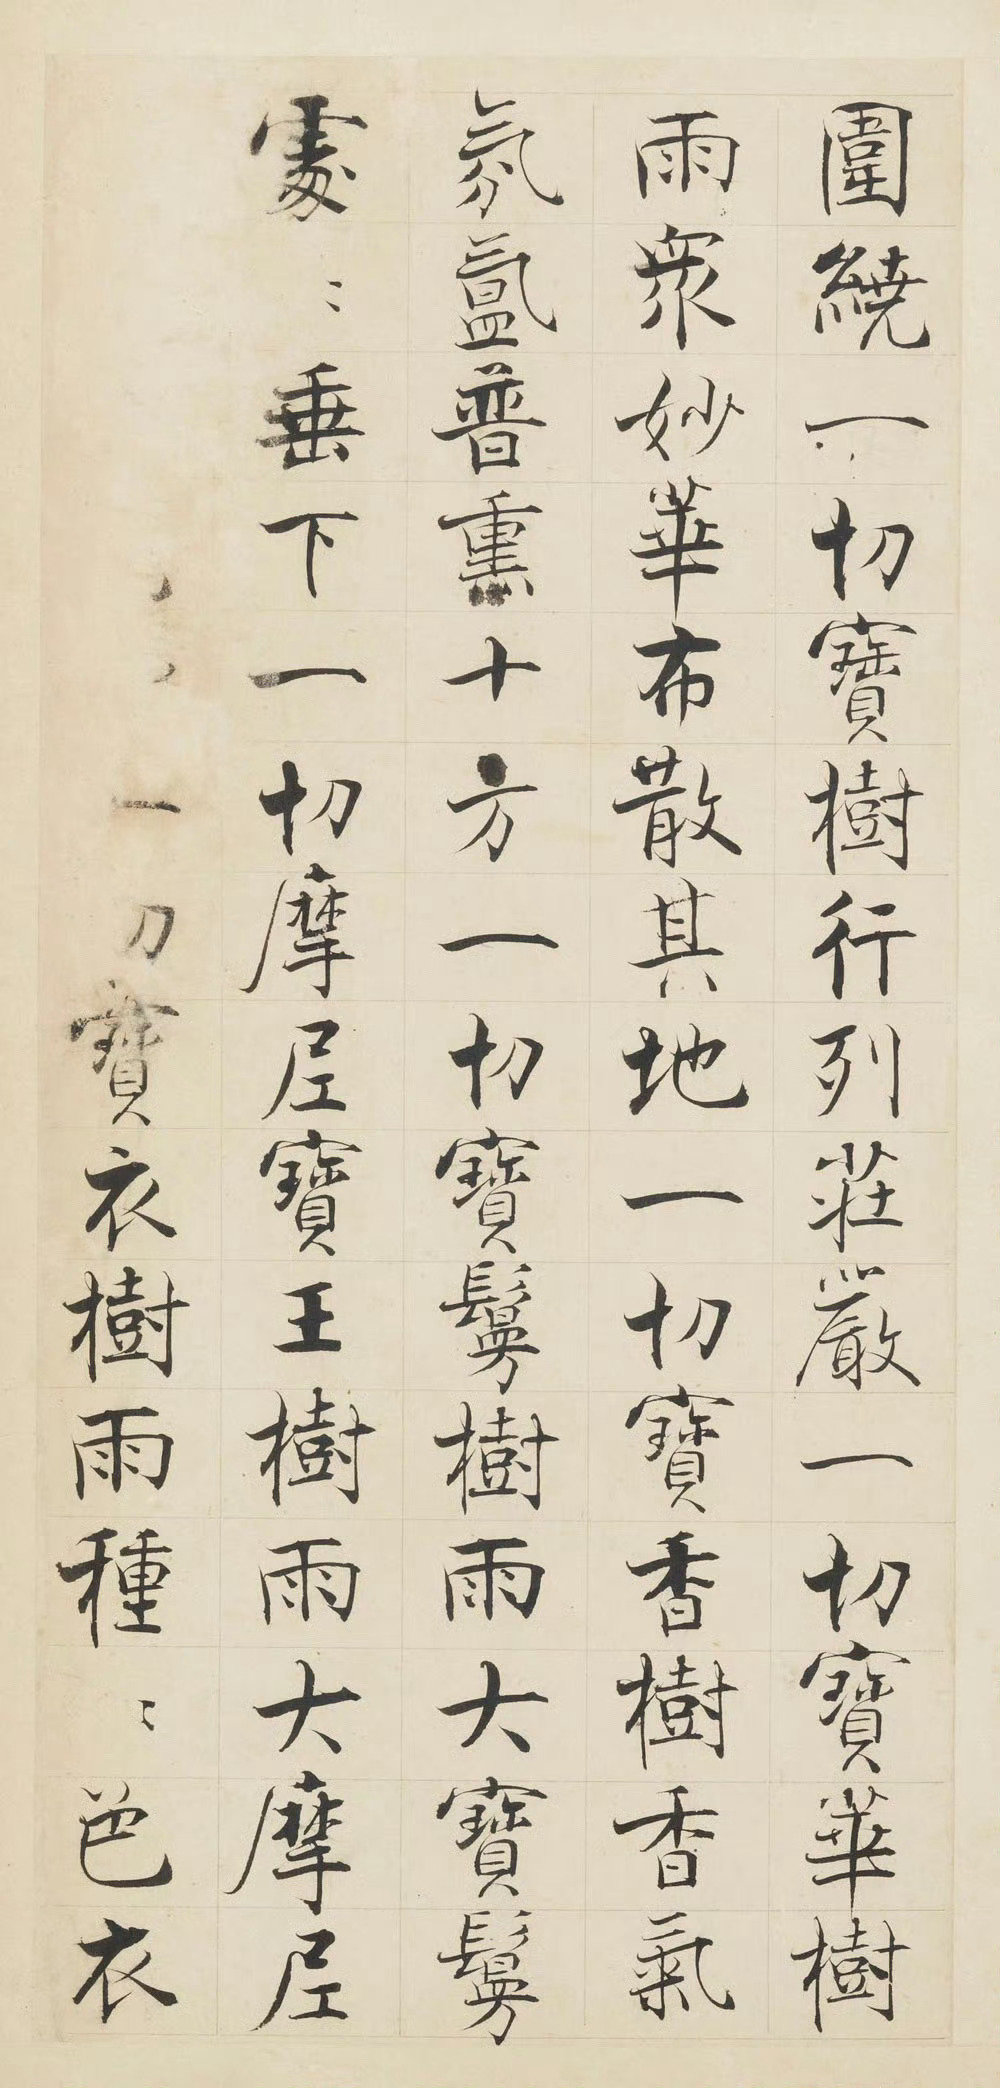 圍繞一切寶樹行列莊嚴一切寶華樹
雨衆妙華布散其地一切寶香樹香氣
氛氳普熏十方一切寶鬘樹雨大寶鬘
處〻垂下一切摩尼寶王樹雨大摩尼
一切寶衣樹雨種〻色衣